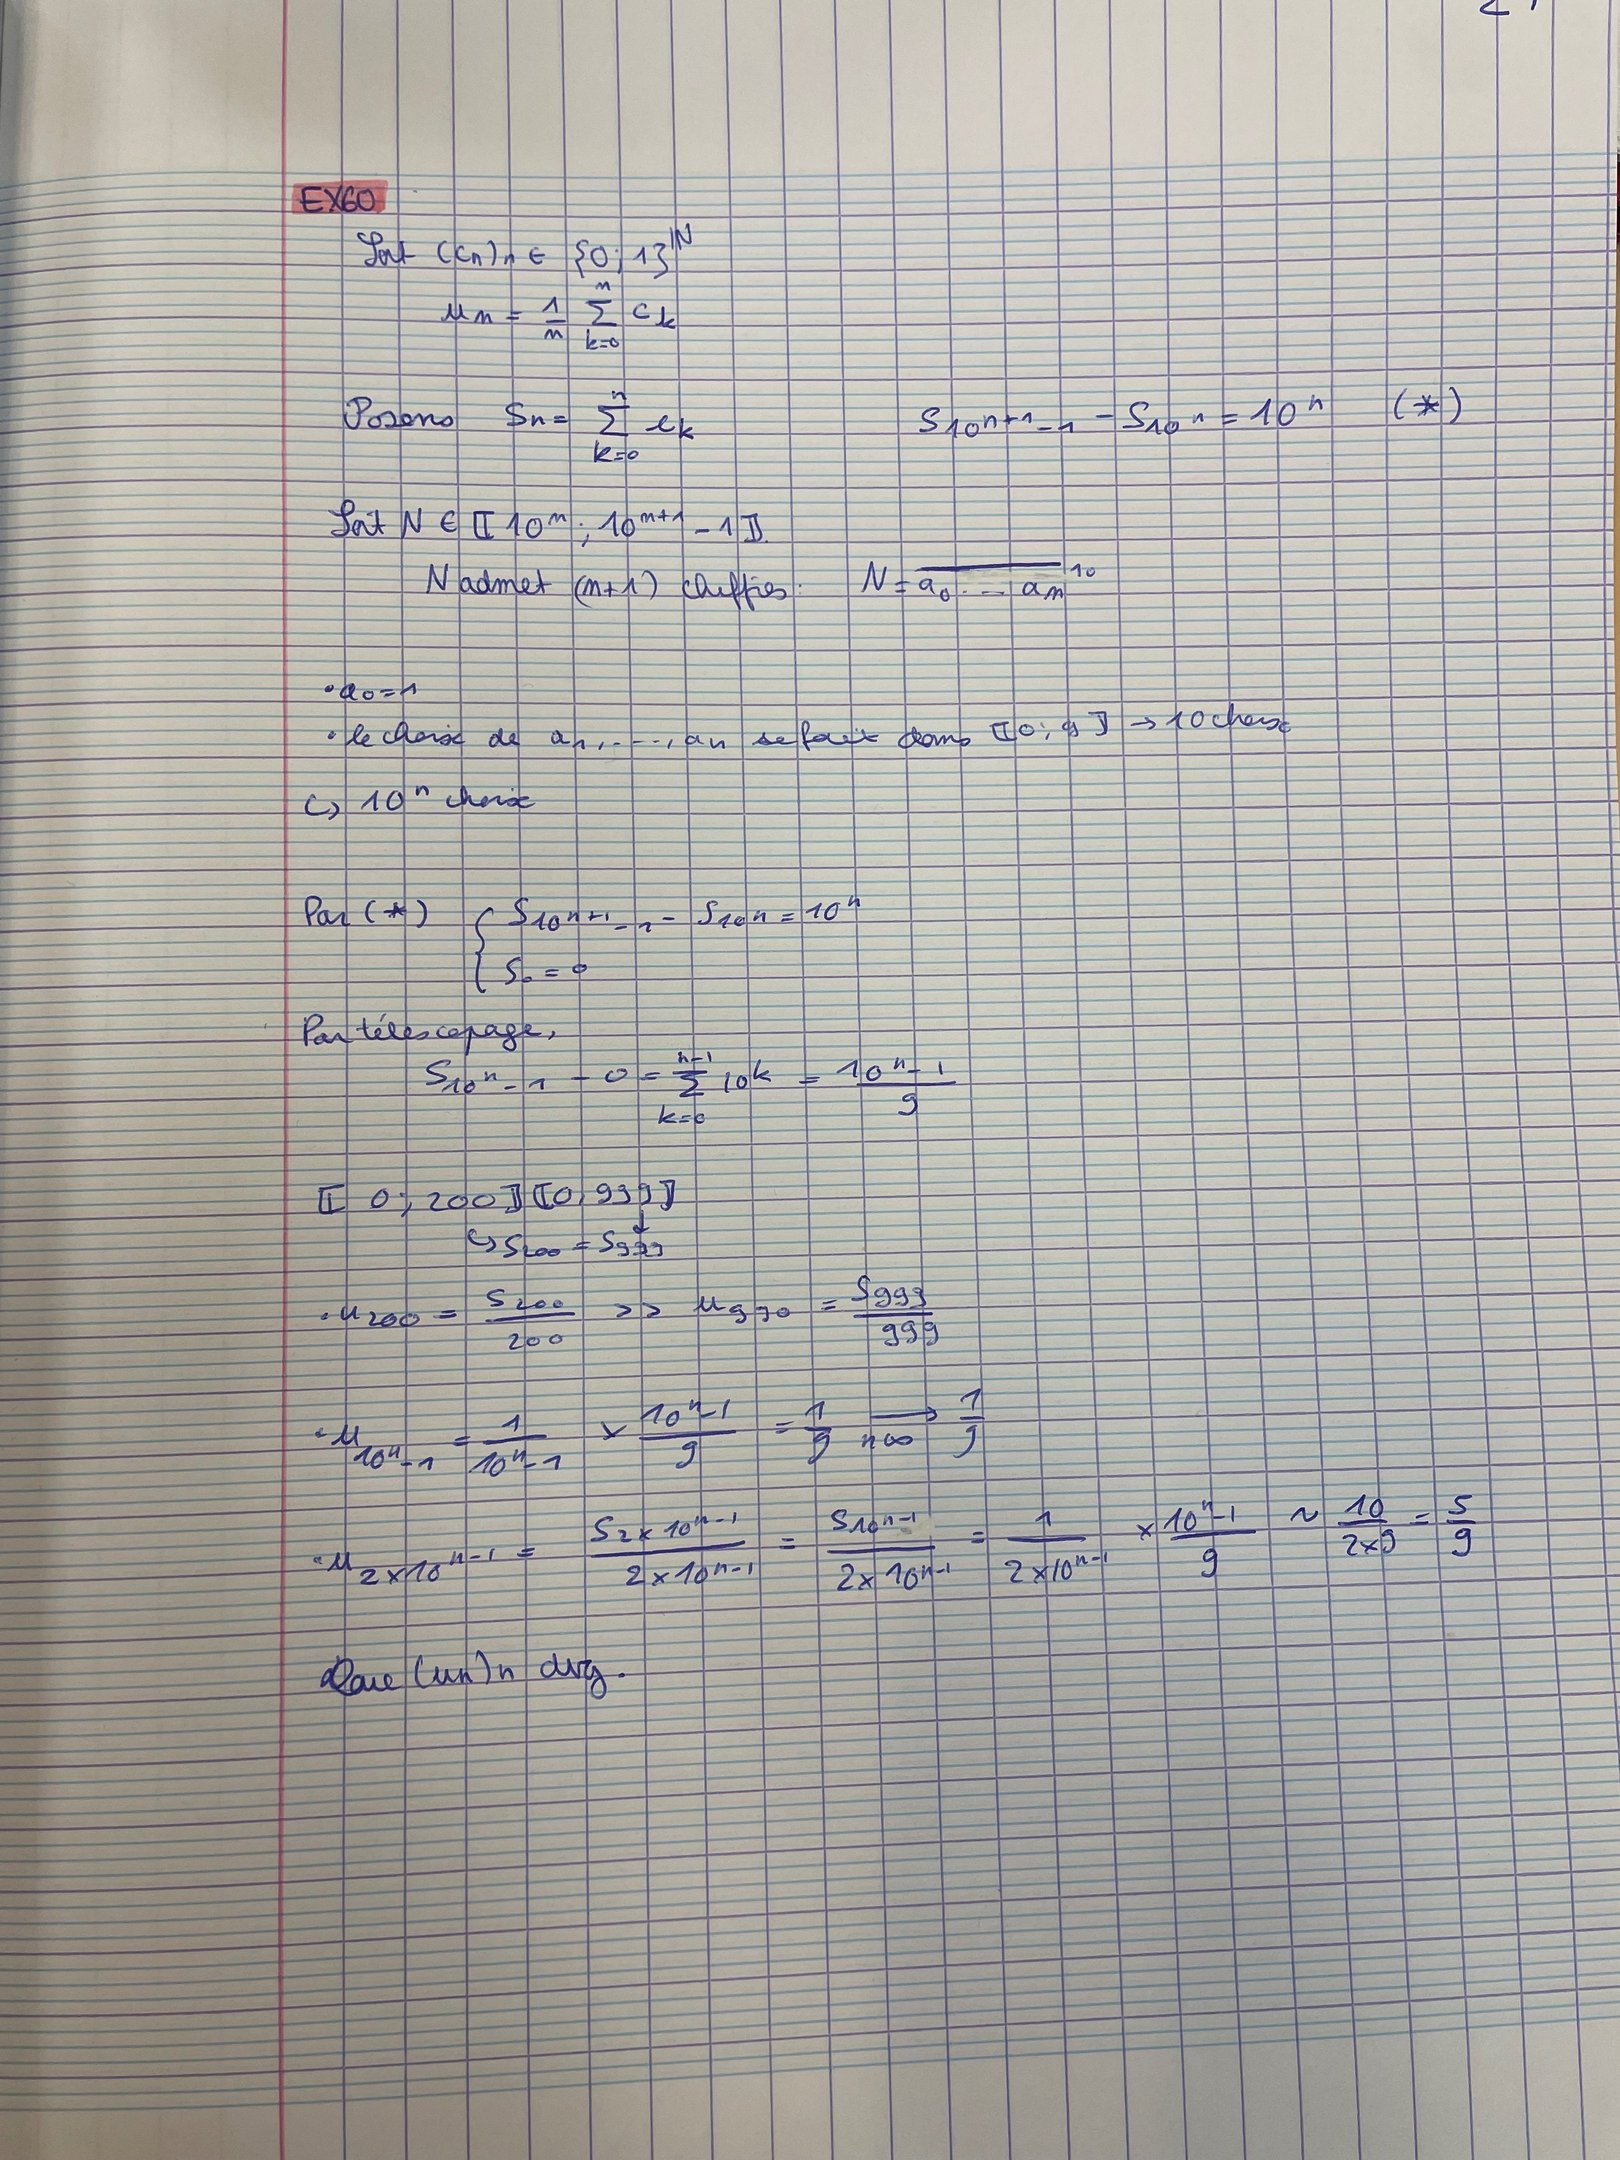 EX60
Soit (cn)n ∈ {0; 1}^ℕ
un = 1/n ∑_{k=0}^{n} ck
Posons Sn = ∑_{k=0}^{n} ck S_{10^{n+1}-1} - S_{10^n} = 10^n (*)
Soit N ∈ ⟦10^n ; 10^{n+1} - 1⟧.
N admet (n+1) chiffres : N = \overline{a0 ... an}^{10}
• a0 = 1
• le choix de a1, ..., an se fait dans ⟦0; 9⟧ → 10 choix
↳ 10^n choix
Par (*) { S_{10^{n+1}-1} - S_{10^n} = 10^n
S0 = 0
Par télescopage,
S_{10^n-1} - 0 = ∑_{k=0}^{n-1} 10^k = (10^n-1)/9
⟦0; 200⟧ ⟦0; 999⟧
↳ S200 = S999
• u200 = S200/200 >> u990 = S999/999
• u_{10^n-1} = 1/(10^n-1) × (10^n-1)/9 = 1/9 →_{n∞} 1/9
• u_{2×10^{n-1}} = S_{2×10^{n-1}}/(2×10^{n-1}) = S_{10^n-1}/(2×10^{n-1}) = 1/(2×10^{n-1}) × (10^n-1)/9 ~ 10/(2×9) = 5/9
(un)n dvg.